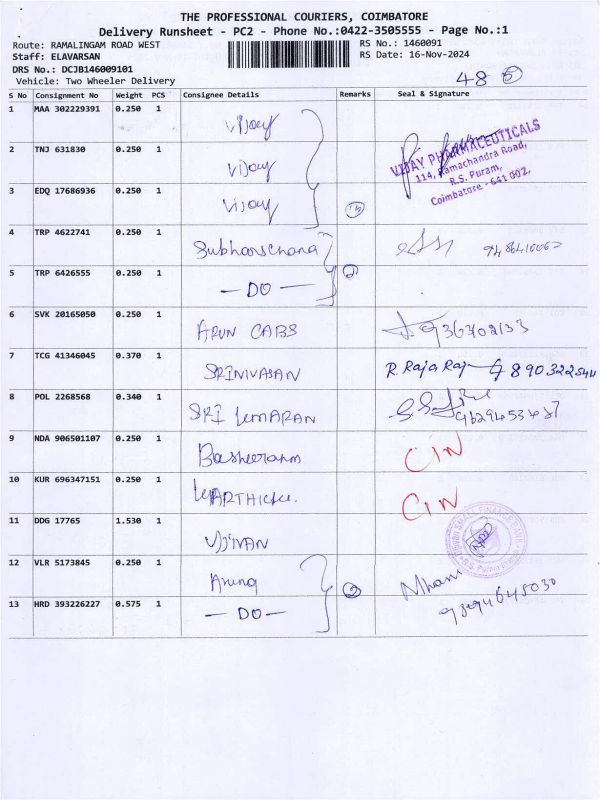 THE PROFESSIONAL COURIERS, COIMBATORE
Delivery Runsheet - PC2 - Phone No.:0422-3505555 - Page No.:1
Route: RAMALINGAM ROAD WEST
RS No.: 1460091
Staff: ELAVARSAN
RS Date: 16-Nov-2024
DRS No.: DCJB146009101
Vehicle: Two Wheeler Delivery
48 5
S No Consignment No Weight PCS Consignee Details Remarks Seal & Signature
1 MAA 302229391 0.250 1 Vijay
2 TNJ 631830 0.250 1 Vijay
VIJAY PHARMACEUTICALS
114, Ramachandra Road,
R.S. Puram,
Coimbatore - 641 002.
3 EDQ 17686936 0.250 1 Vijay
4 TRP 4622741 0.250 1
5 TRP 6426555 0.250 1 — DO — 2
6 SVK 20165050 0.250 1 ARUN CABS 936702133
7 TCG 41346045 0.370 1 SRINIVASAN R. Raja Raj
8 POL 2268568 0.340 1 SRI KUMARAN
9 NDA 906501107 0.250 1 CIN
10 KUR 696347151 0.250 1 CIN
11 DDG 17765 1.530 1 UJJIVAN
12 VLR 5173845 0.250 1 2
13 HRD 393226227 0.575 1 — DO —